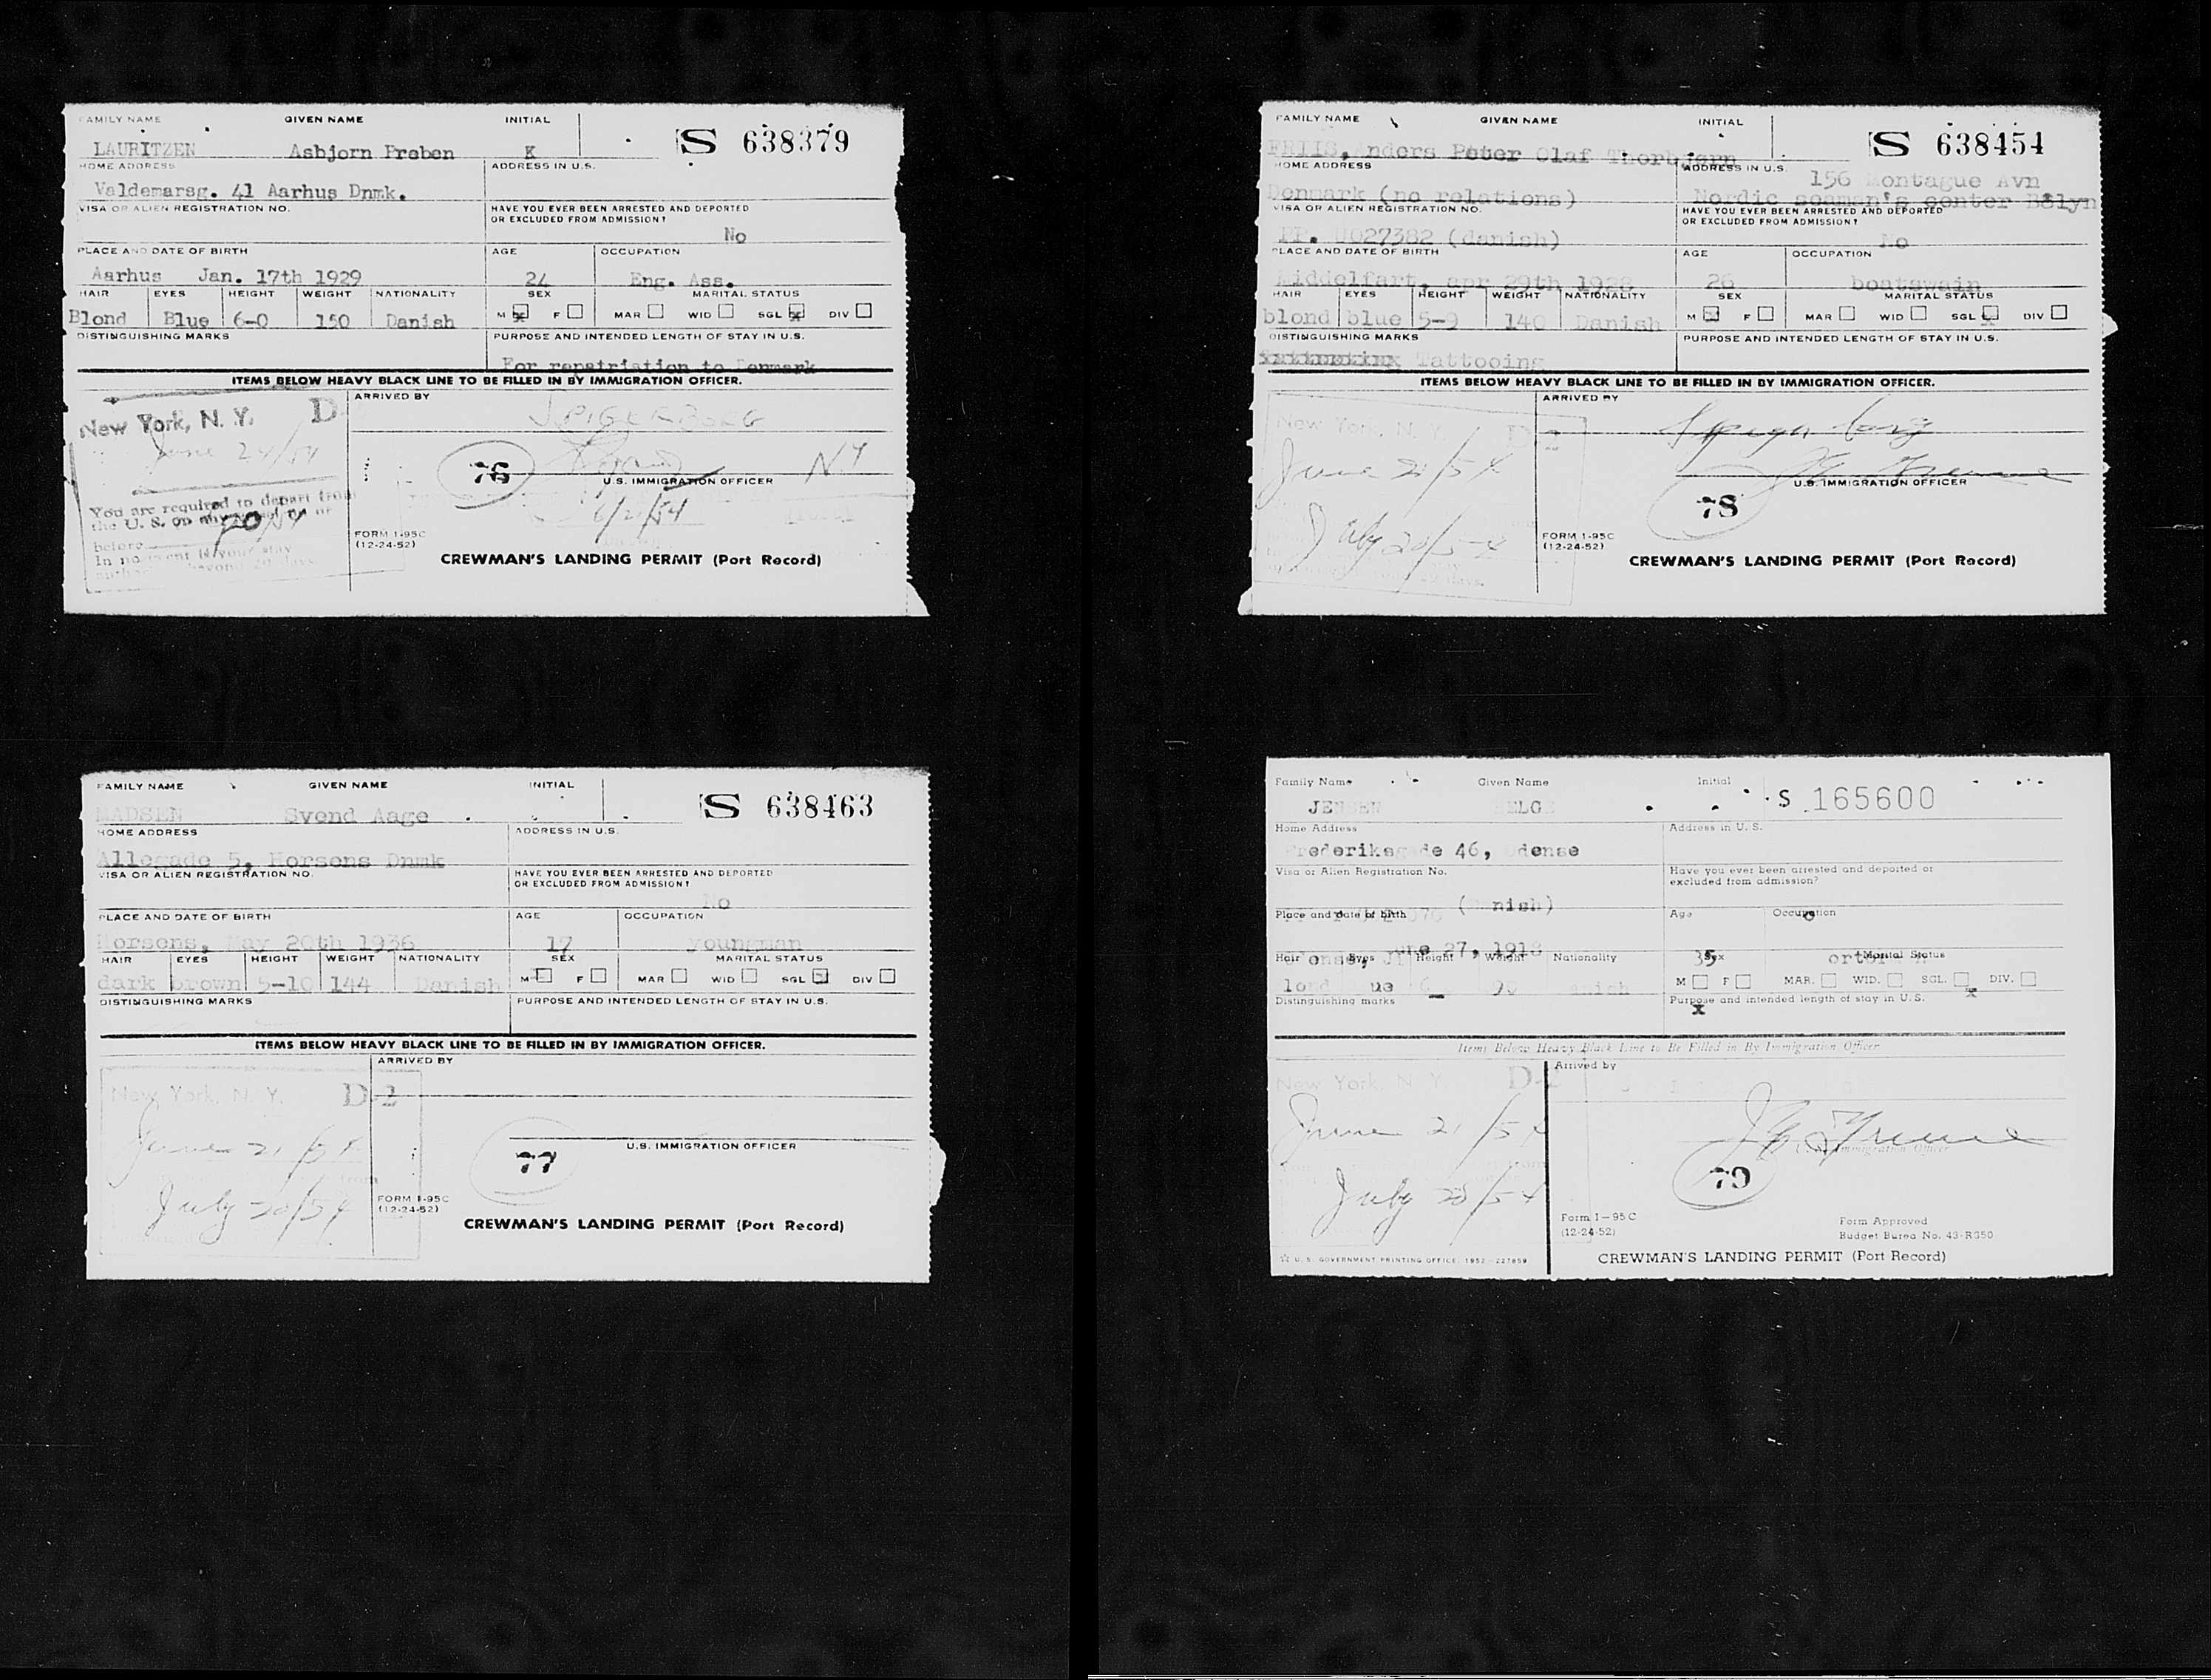 FAMILY NAME GIVEN NAME INITIAL
S 638379
LAURITZEN Asbjorn Preben K
HOME ADDRESS ADDRESS IN U.S.
Valdemarsg. 41 Aarhus Dnmk.
VISA OR ALIEN REGISTRATION NO. HAVE YOU EVER BEEN ARRESTED AND DEPORTED
OR EXCLUDED FROM ADMISSION?
No
PLACE AND DATE OF BIRTH AGE OCCUPATION
Aarhus Jan. 17th 1929 24 Eng. Ass.
HAIR EYES HEIGHT WEIGHT NATIONALITY SEX MARITAL STATUS
Blond Blue 6-0 150 Danish M x F MAR WID SGL x DIV
DISTINGUISHING MARKS PURPOSE AND INTENDED LENGTH OF STAY IN U.S.
For repatriation to Denmark
ITEMS BELOW HEAVY BLACK LINE TO BE FILLED IN BY IMMIGRATION OFFICER.
ARRIVED BY
New York, N. Y. D
June 21/54
76 N.Y
U.S. IMMIGRATION OFFICER
You are required to depart from
the U. S. on any vessel on or
before 20/54
6/21/54
FORM I-95C
(12-24-52)
CREWMAN'S LANDING PERMIT (Port Record)
FAMILY NAME GIVEN NAME INITIAL
S 638454
FRIIS, Anders Peter Olaf Thorbjørn
HOME ADDRESS ADDRESS IN U.S.
156 Montague Avn
Denmark (no relations) Nordic seaman's center Bklyn
VISA OR ALIEN REGISTRATION NO. HAVE YOU EVER BEEN ARRESTED AND DEPORTED
OR EXCLUDED FROM ADMISSION?
PP. 027382 (danish) No
PLACE AND DATE OF BIRTH AGE OCCUPATION
Middelfart, apr 29th 1928 26 boatswain
HAIR EYES HEIGHT WEIGHT NATIONALITY SEX MARITAL STATUS
blond blue 5-9 140 Danish M F MAR WID SGL x DIV
DISTINGUISHING MARKS PURPOSE AND INTENDED LENGTH OF STAY IN U.S.
Tattooing
ITEMS BELOW HEAVY BLACK LINE TO BE FILLED IN BY IMMIGRATION OFFICER.
ARRIVED BY
New York, N. Y. D-2
June 21/54
U.S. IMMIGRATION OFFICER
78
July 20/54
FORM I-95C
(12-24-52)
CREWMAN'S LANDING PERMIT (Port Record)
FAMILY NAME GIVEN NAME INITIAL
S 638463
MADSEN Svend Aage
HOME ADDRESS ADDRESS IN U.S.
Allegade 5, Horsens Dnmk
VISA OR ALIEN REGISTRATION NO. HAVE YOU EVER BEEN ARRESTED AND DEPORTED
OR EXCLUDED FROM ADMISSION?
No
PLACE AND DATE OF BIRTH AGE OCCUPATION
Horsens, May 20th 1936 17 youngman
HAIR EYES HEIGHT WEIGHT NATIONALITY SEX MARITAL STATUS
dark brown 5-10 144 Danish M F MAR WID SGL DIV
DISTINGUISHING MARKS PURPOSE AND INTENDED LENGTH OF STAY IN U.S.
ITEMS BELOW HEAVY BLACK LINE TO BE FILLED IN BY IMMIGRATION OFFICER.
ARRIVED BY
New York, N. Y. D-2
June 21/54
77
U.S. IMMIGRATION OFFICER
July 20/54
FORM I-95C
(12-24-52)
CREWMAN'S LANDING PERMIT (Port Record)
Family Name Given Name Initial
S 165600
JENSEN ELG
Home Address Address in U. S.
rederiksg de 46, dense
Visa or Alien Registration No. Have you ever been arrested and deported or
excluded from admission?
( nish)
Place and date of birth Age Occupation
une 27, 1918
Hair Eyes Height Weight Nationality Sex Marital Status
35 orter
lo ue 6 90 anish M F MAR. WID. SGL. x DIV.
Distinguishing marks Purpose and intended length of stay in U.S.
x
Items Below Heavy Black Line to Be Filled in By Immigration Officer
Arrived by
New York, N. Y. D-
June 21/54
U.S. Immigration Officer
79
July 20/54
Form I-95C
(12-24-52)
Form Approved
Budget Burea No. 43-R350
U.S. GOVERNMENT PRINTING OFFICE: 1952-227859
CREWMAN'S LANDING PERMIT (Port Record)